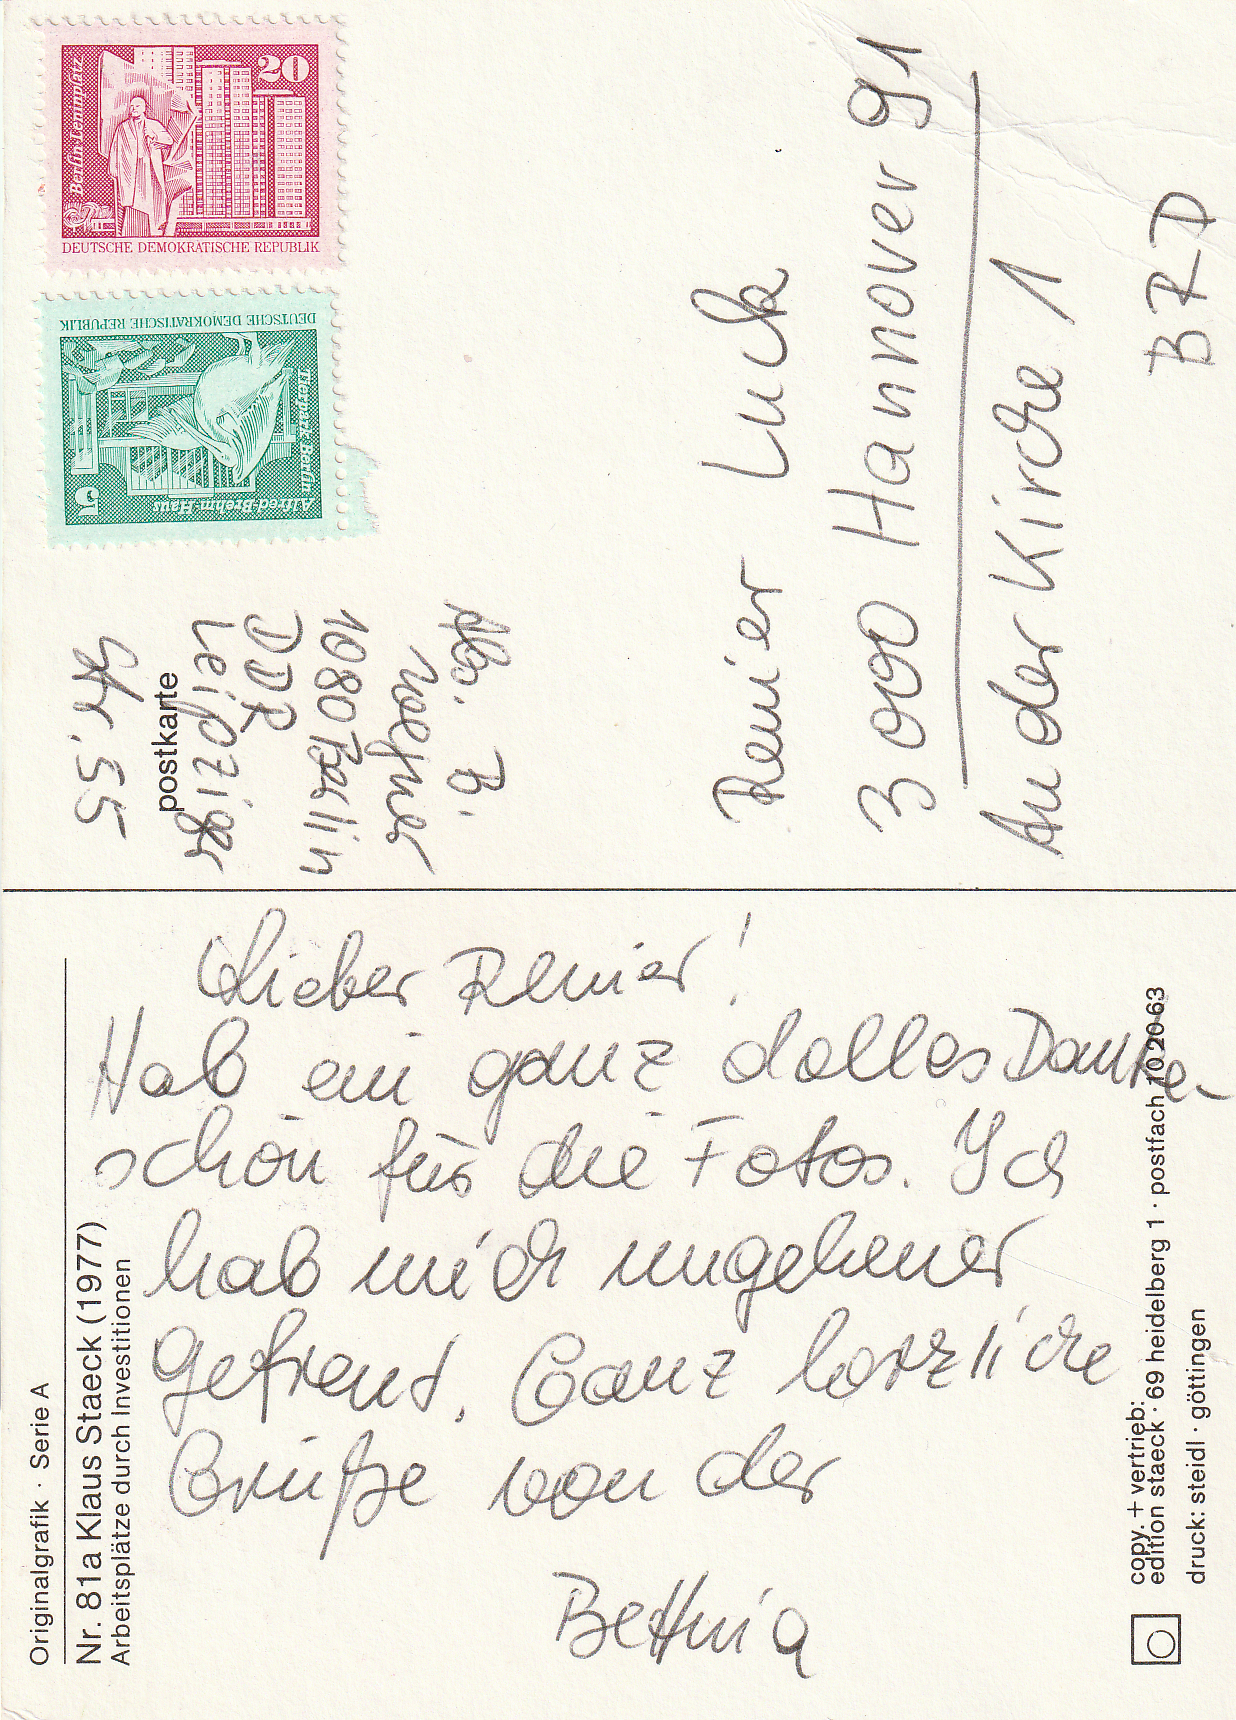 Berlin-Leninplatz
20
DEUTSCHE DEMOKRATISCHE REPUBLIK
DEUTSCHE DEMOKRATISCHE REPUBLIK
Tierpark Berlin
Alfred-Brehm-Haus
5
Abs. B.
1080 Berlin
DDR
Leipziger
Str. 55
postkarte
Renier Luck
3000 Hannover 91
An der Kirche 1
BRD
Lieber Renier!
Hab ein ganz dolles Danke-
schön für die Fotos. Ich
hab mich ungeheuer
gefreut. Ganz herzliche
Grüße von der
Bettina
Originalgrafik · Serie A
Nr. 81a Klaus Staeck (1977)
Arbeitsplätze durch Investitionen
copy. + vertrieb:
edition staeck · 69 heidelberg 1 · postfach 102063
druck: steidl · göttingen